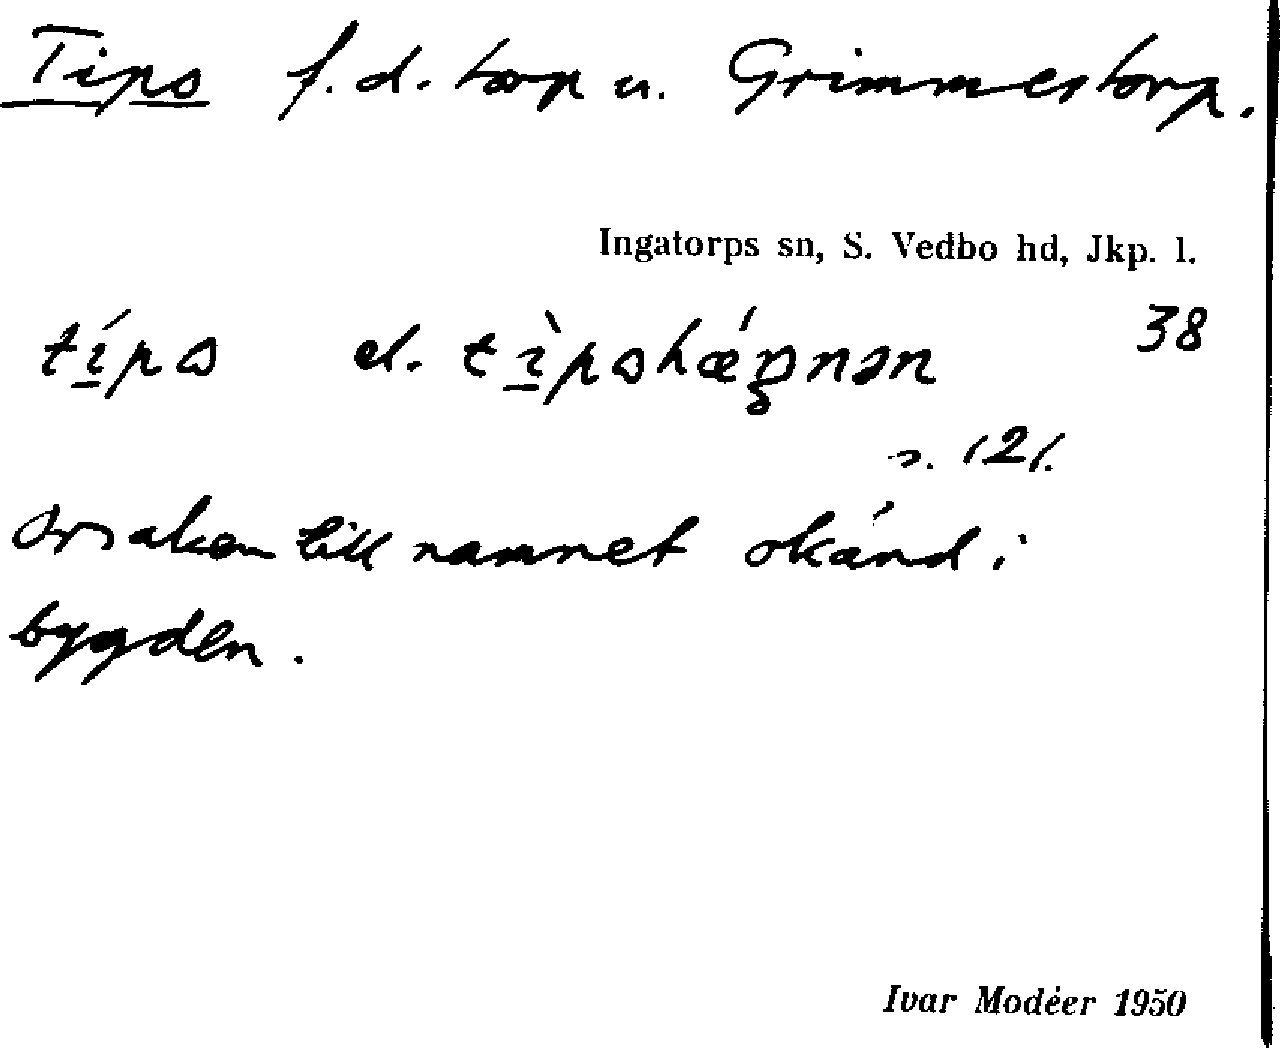 Tips f.d. torp u. Grimmestorp.
Ingatorps sn, S. Vedbo hd, Jkp. l.
38
s. 121.
Orsaken till namnet okänd i
bygden.
Ivar Modéer 1950